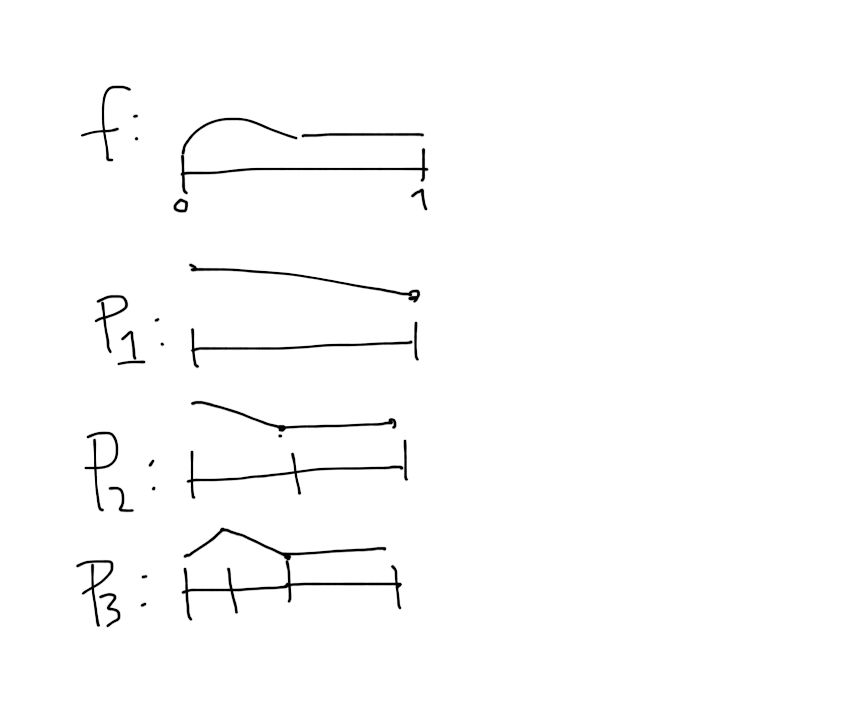 f:
0 1
P1:
P2:
P3: